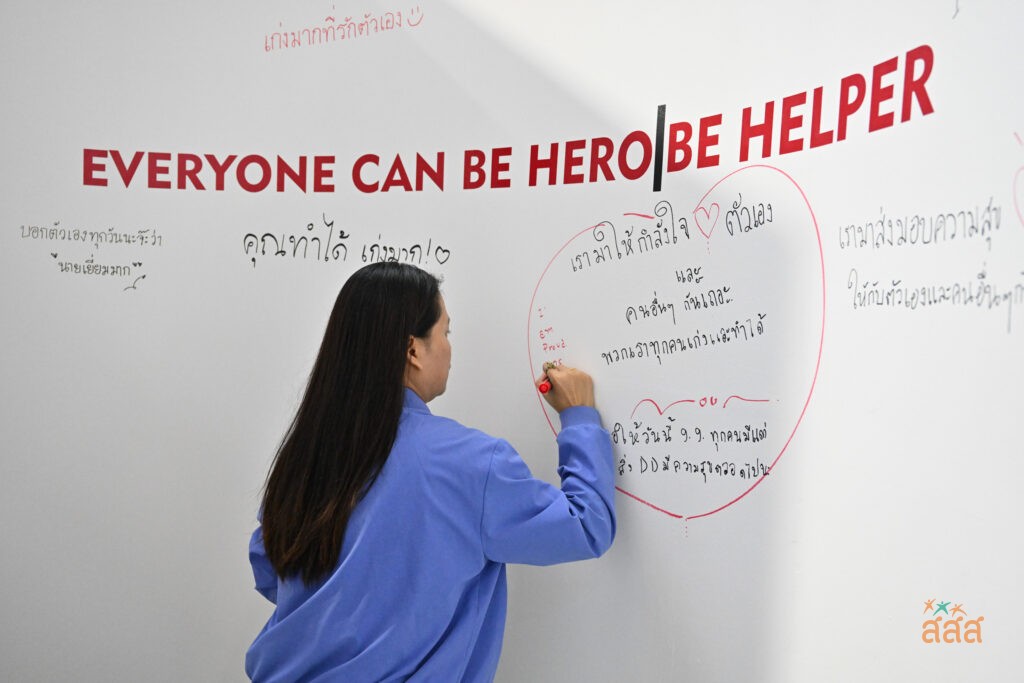 เก่งมากที่รักตัวเอง
EVERYONE CAN BE HERO|BE HELPER
บอกตัวเองทุกวันนะจ๊ะว่า
"นายเยี่ยมมาก"
คุณทำได้ เก่งมาก!♡
เรามาให้กำลังใจ ♡ ตัวเอง
และ
คนอื่นๆ กันเถอะ
พวกเราทุกคนเก่งและทำได้
I
Proud
ให้วันนี้ 9.9. ทุกคนมีแต่
สิ่ง DD มีความสุขตลอดไปนะ
เรามาส่งมอบความสุข
ให้กับตัวเองและคนอื่นๆ
สสส